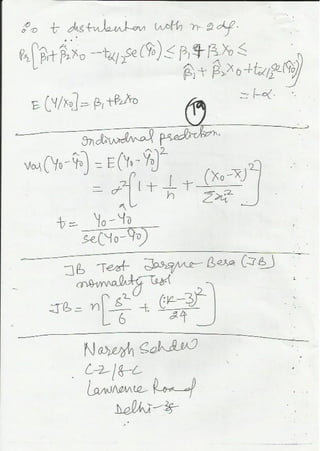 ∴ t distribution with n-2 df.
Pr[β̂1+β̂2X0 - tα/2 se(Ŷ0) ≤ β1+β2X0 ≤
β̂1+β̂2X0+tα/2 se(Ŷ0)]
= 1-α
E(Y/X0] = β1+β2X0
19
Individual prediction.
var(Y0-Ŷ0) = E(Y0-Ŷ0)²
= σ²[1 + 1/n + (X0-X̄)²/Σxi²]
t = Y0-Ŷ0 / se(Y0-Ŷ0)
JB Test Jarque Bera (JB)
normality Test
JB = n[S²/6 + (K-3)²/24]
Naresh Sehdev
C-2/8-C
Lawrence Road
Delhi-35